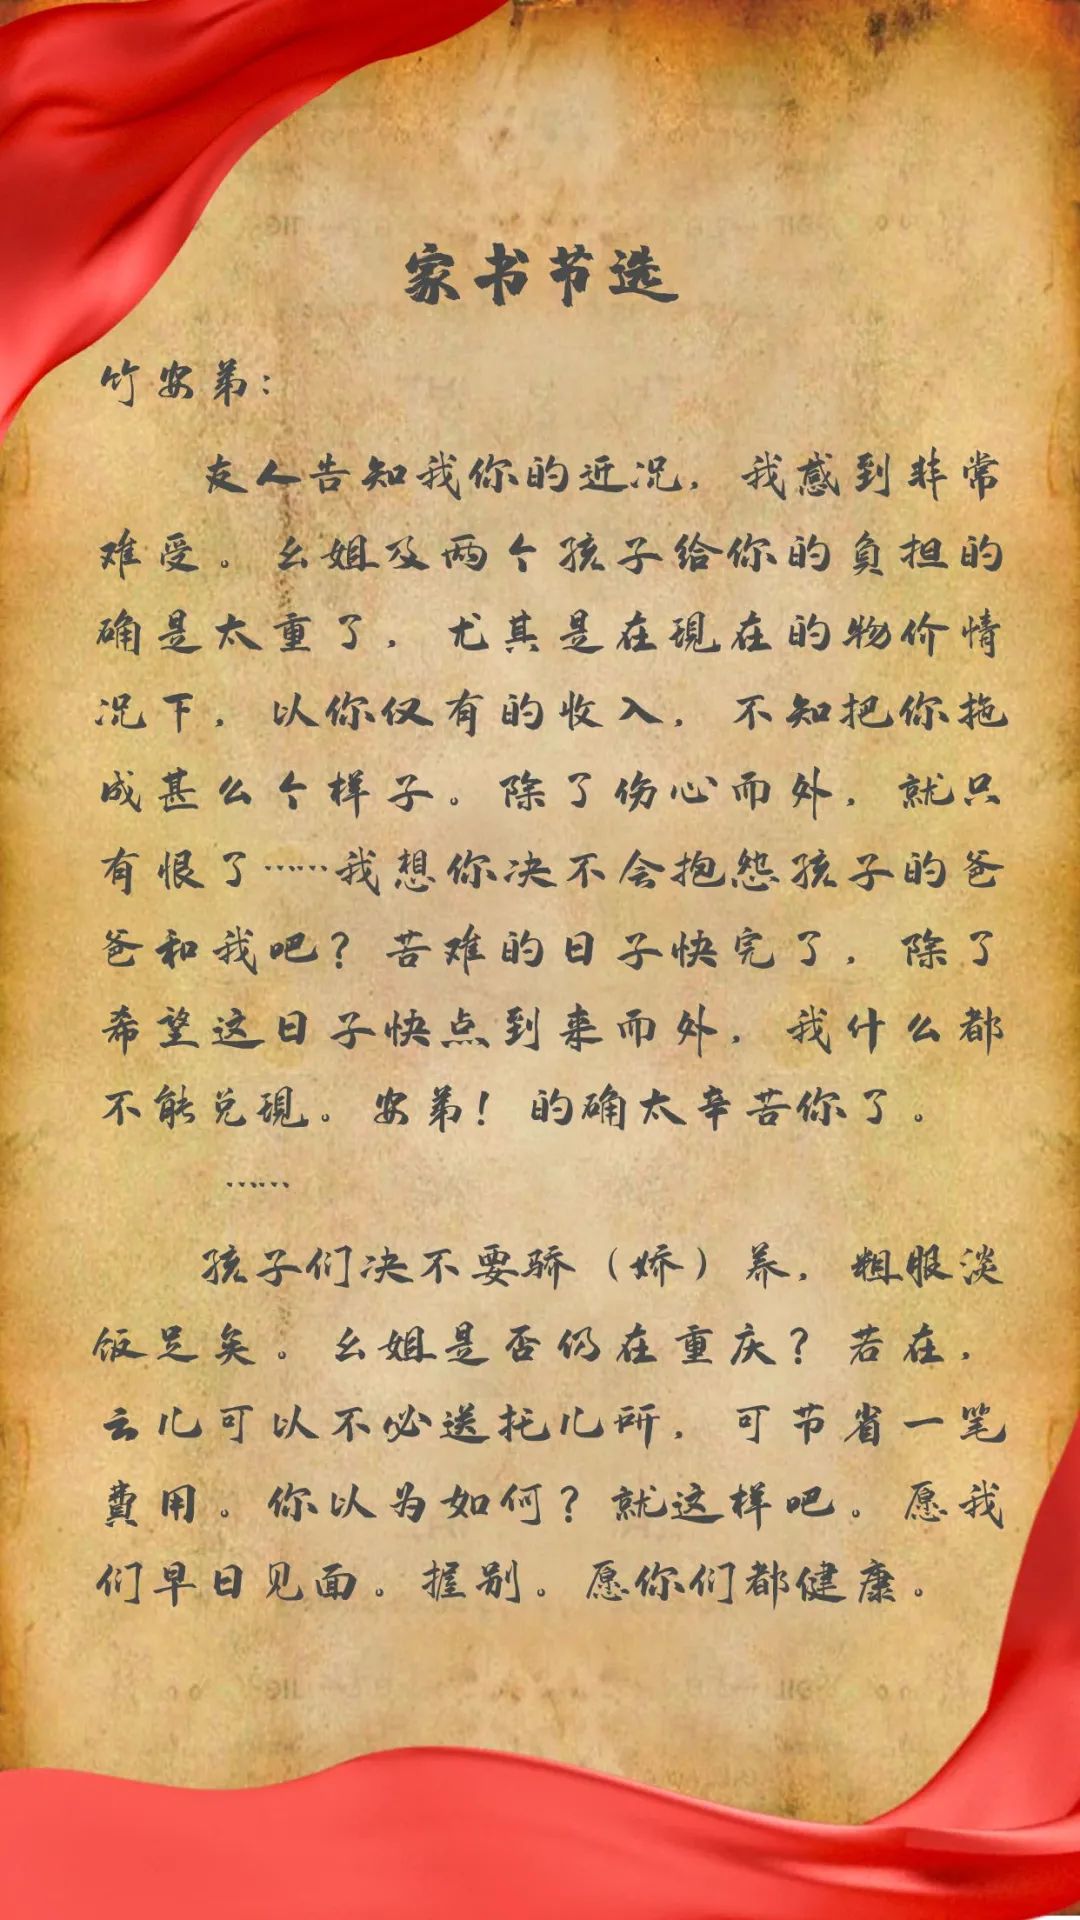 家书节选
竹安弟：
友人告知我你的近况，我感到非常
难受。幺姐及两个孩子给你的負担的
确是太重了，尤其是在現在的物价情
况下，以你仅有的收入，不知把你拖
成甚么个样子。除了伤心而外，就只
有恨了……我想你决不会抱怨孩子的爸
爸和我吧？苦难的日子快完了，除了
希望这日子快点到来而外，我什么都
不能兑現。安弟！的确太辛苦你了。
……
孩子们决不要骄（娇）养，粗服淡
饭足矣。幺姐是否仍在重庆？若在，
云儿可以不必送托儿所，可节省一笔
費用。你以为如何？就这样吧。愿我
们早日见面。握别。愿你们都健康。